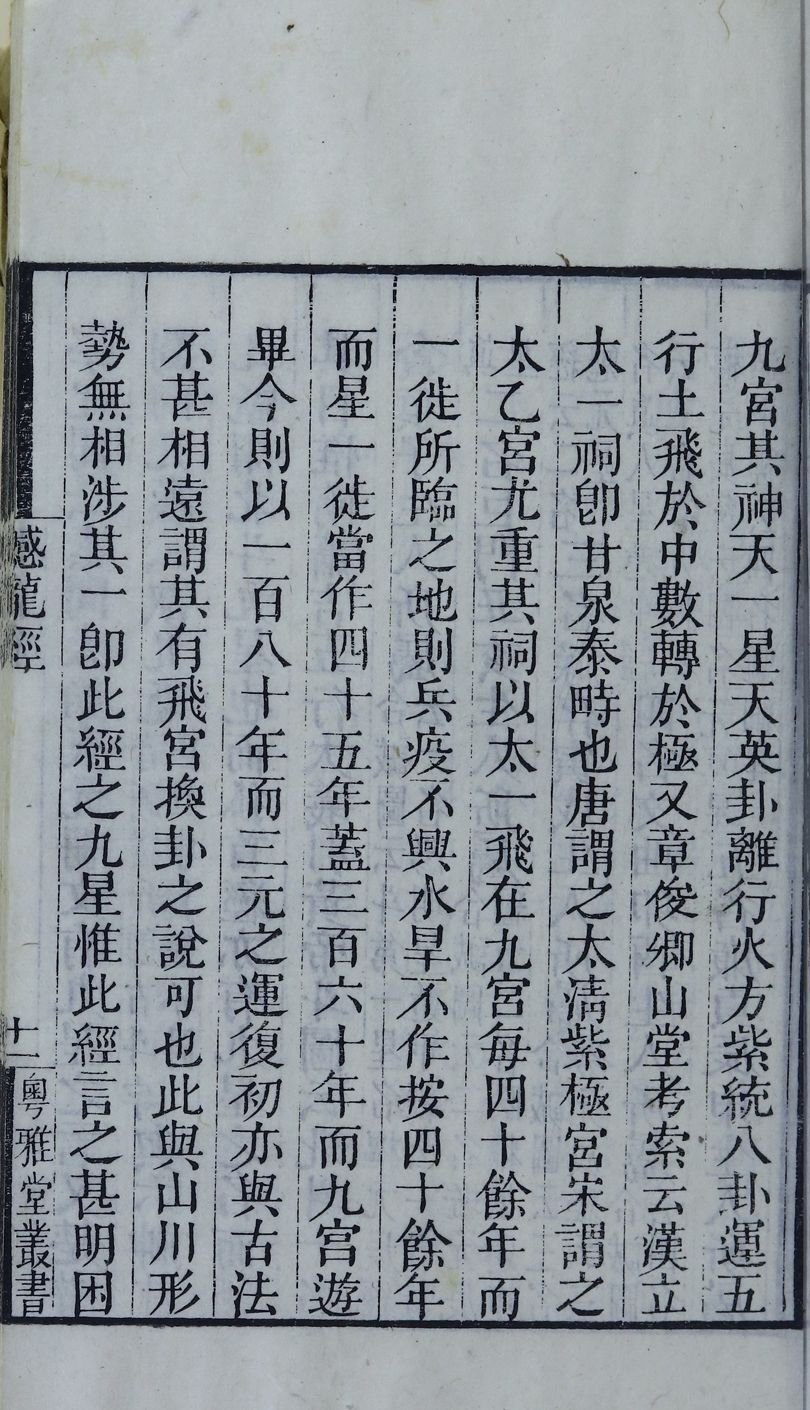 九宮其神天一星天英卦離行火方紫統八卦運五
行土飛於中數轉於極又章俊卿山堂考索云漢立
太一祠卽甘泉泰畤也唐謂之太淸紫極宮宋謂之
太乙宮尤重其祠以太一飛在九宮每四十餘年而
一徙所臨之地則兵疫不興水旱不作按四十餘年
而星一徙當作四十五年蓋三百六十年而九宮遊
畢今則以一百八十年而三元之運復初亦與古法
不甚相遠謂其有飛宮換卦之說可也此與山川形
勢無相涉其一卽此經之九星惟此經言之甚明因
撼龍經
十一
粵雅堂叢書